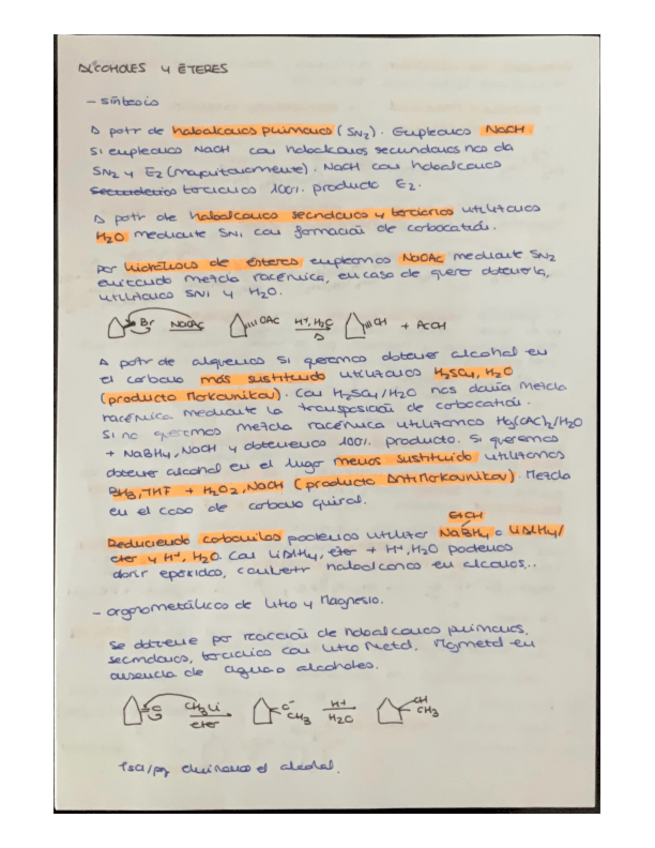 ALCOHOLES Y ÉTERES
- síntesis
A patr de haloalcanos primarios (SN2). Empleamos NaOH
si empleamos NaOH con haloalcanos secundarios nos da
SN2 y E2 (mayoritariamente). NaOH con haloalcanos
Secundarios terciarios 100% producto E2.
A patr de haloalcanos secundarios y terciarios utilizamos
H2O mediante SN1 con formación de carbocatión.
Por hidrólisis de ésteres empleamos NaOAc mediante SN2
evitando mezcla racémica, en caso de querer obtenerla,
utilizamos SN1 y H2O.
Br NaOAc OAc H+, H2O Δ OH + AcOH
A patr de alquenos si queremos obtener alcohol en
el carbono más sustituido utilizamos H2SO4, H2O
(producto Markovnikov). Con H2SO4/H2O nos daría mezcla
racémica mediante la transposición de carbocatión.
Si no queremos mezcla racémica utilizamos Hg(OAc)2/H2O
+ NaBH4, NaOH y obtenemos 100% producto. Si queremos
obtener alcohol en el lugar menos sustituido utilizamos
BH3, THF + H2O2, NaOH (producto AntiMarkovnikov). Mezcla
en el caso de carbono quiral.
EtOH
Reduciendo carbonilos podemos utilizar NaBH4 o LiAlH4/
eter y H+, H2O. Con LiAlH4, eter + H+, H2O podemos
abrir epóxidos, convertir haloalcanos en alcanos...
- organometálico de litio y Magnesio.
Se obtiene por reacción de haloalcanos primarios,
secundarios, terciarios con Litro Metal, Mg metal en
ausencia de agua o alcoholes.
O CH3Li eter O- CH3 H+ H2O OH CH3
TsCl/py eliminamos el alcohol.